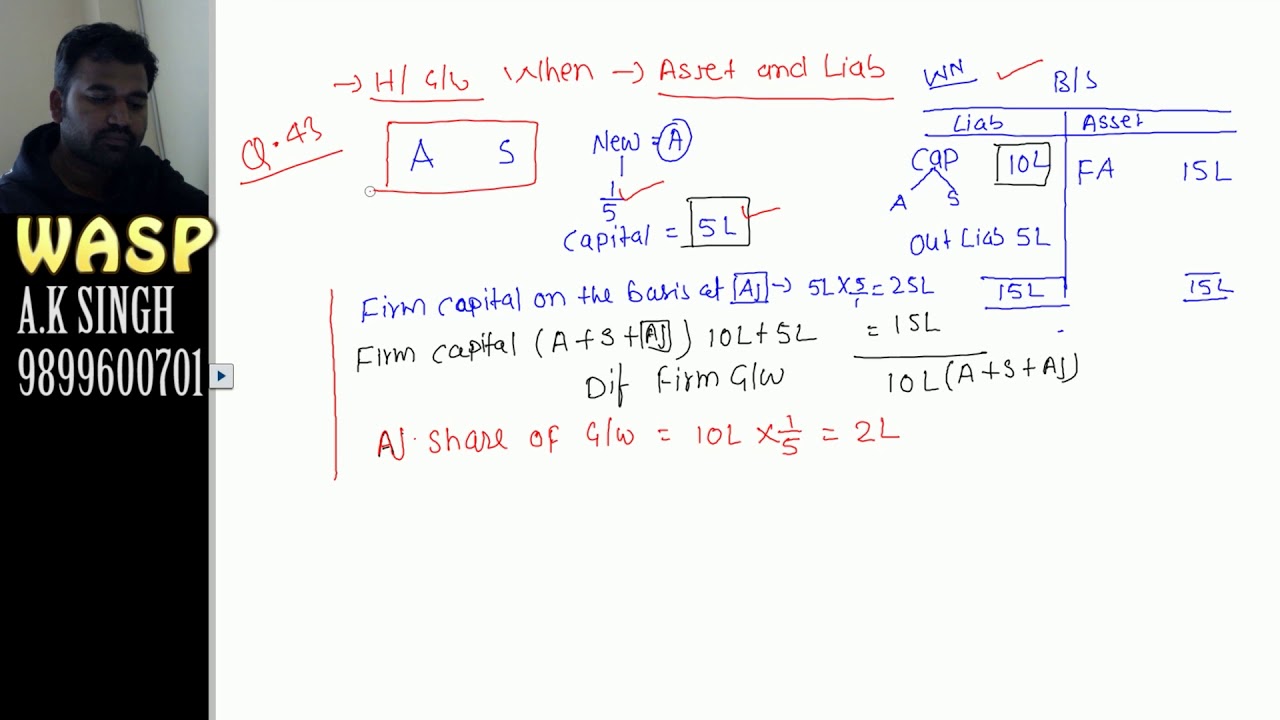 WASP
A.K SINGH
9899600701
→ H/ G/W When → Asset and Liab
Q.43
A S
New = A
1/5
Capital = 5L
WN
B/S
Liab Asset
Cap 10L FA 15L
A S
Out Liab 5L
15L 15L
Firm capital on the basis at AJ → 5L × 5/1 = 25L
Firm capital (A+S+AJ) 10L+5L = 15L
Dif Firm G/W 10L (A+S+AJ)
AJ. Share of G/W = 10L × 1/5 = 2L